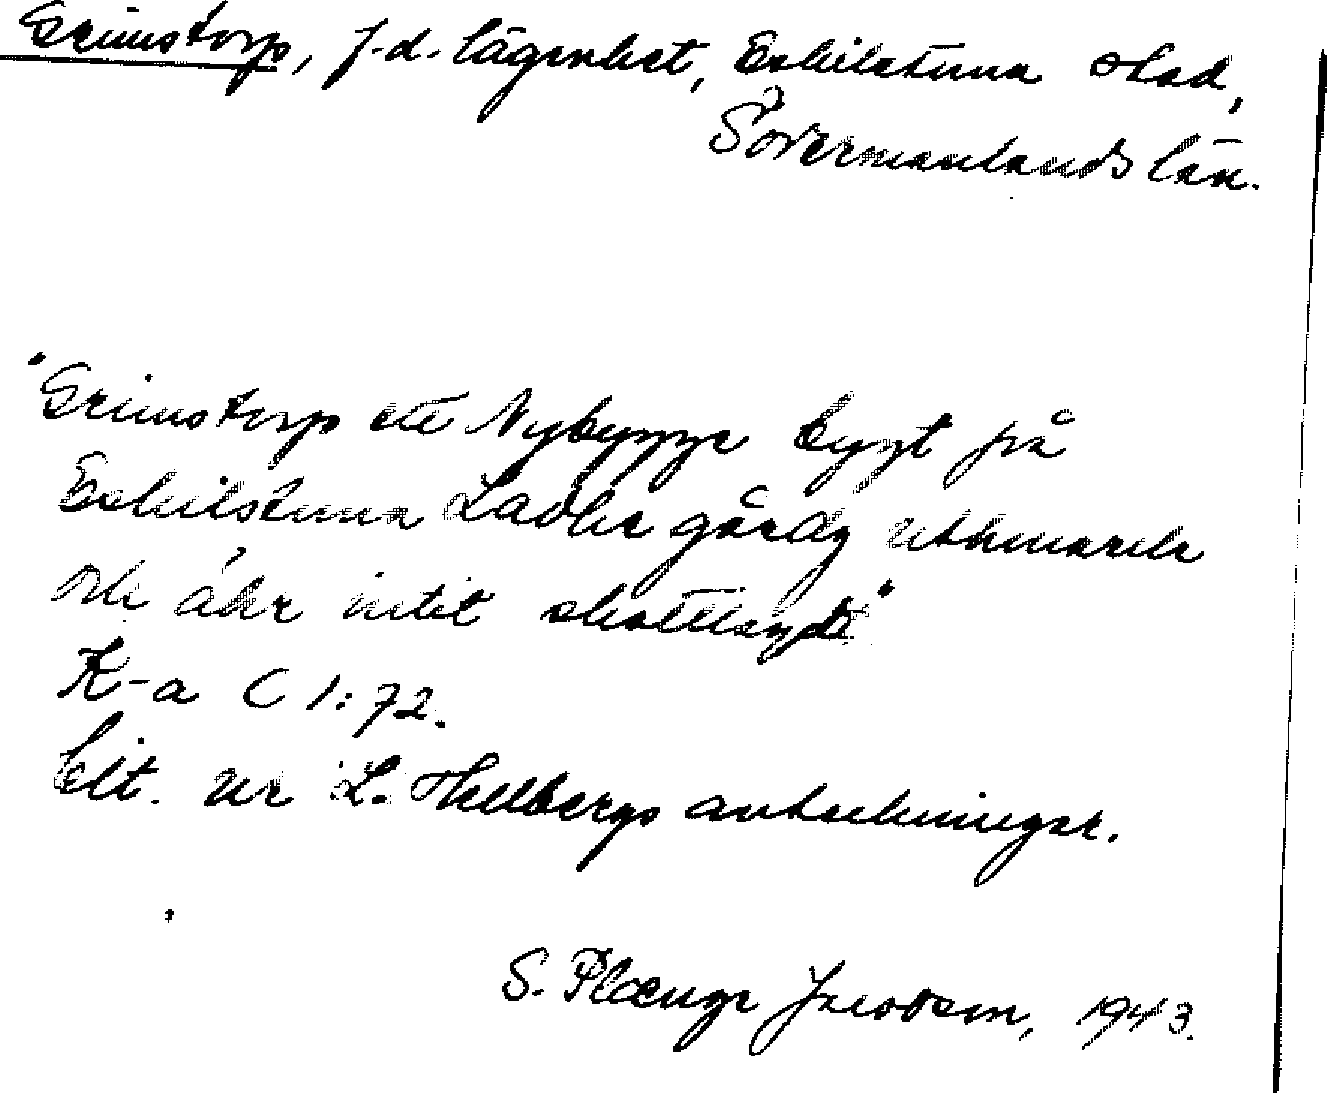 Grimstorp, f.d. lägenhet, Eskilstuna stad,
Södermanlands län.
"Grimstorp ett Nybygge bygt på
Eskilstuna Ladhe gårdz uthmark
och åhr intit skattlagdt"
K-a C 1:72.
Cit. ur L. Hellbergs anteckningar.
S. Plænge Jacobson, 1943.